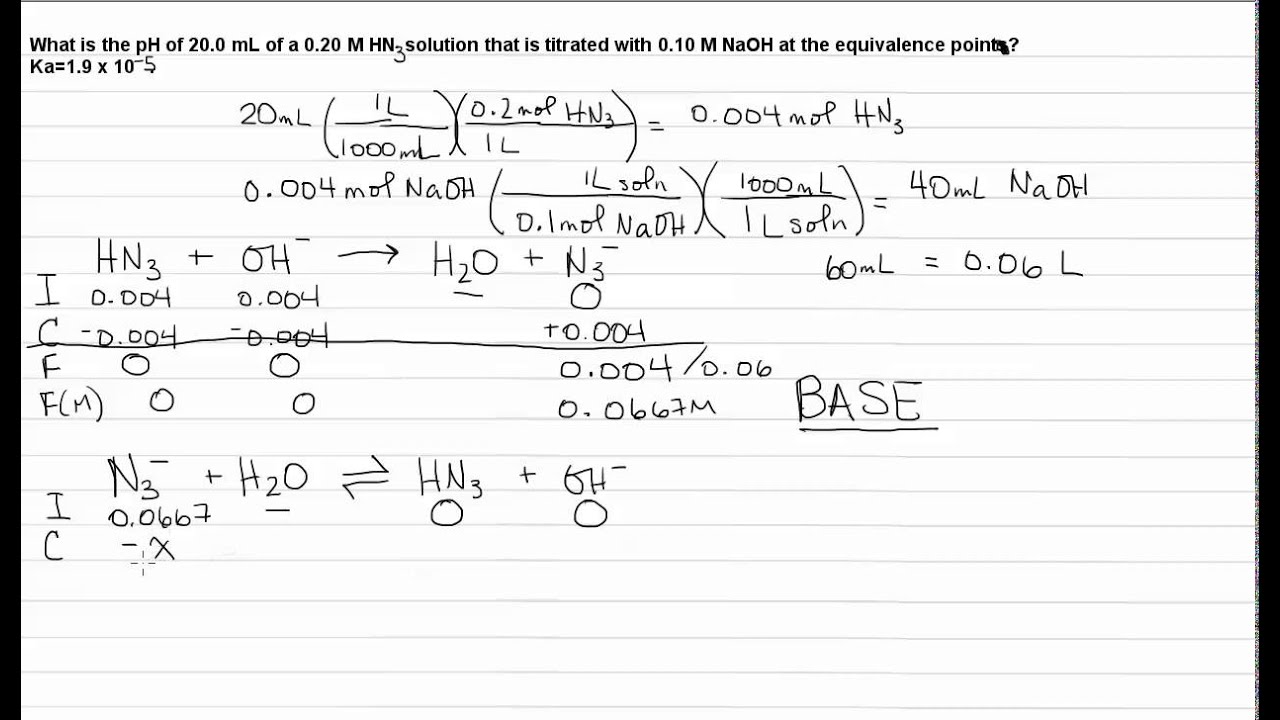 What is the pH of 20.0 mL of a 0.20 M HN3 solution that is titrated with 0.10 M NaOH at the equivalence point?
Ka=1.9 x 10⁻⁵
20mL (1L/1000mL)(0.2mol HN₃/1L) = 0.004mol HN₃
0.004mol NaOH (1L soln/0.1mol NaOH)(1000mL/1L soln) = 40mL NaOH
HN₃ + OH⁻ → H₂O + N₃⁻
60mL = 0.06 L
I 0.004 0.004 0
C -0.004 -0.004 +0.004
F 0 0 0.004/0.06
F(M) 0 0 0.0667M
BASE
N₃⁻ + H₂O ⇌ HN₃ + OH⁻
I 0.0667 0 0
C -x